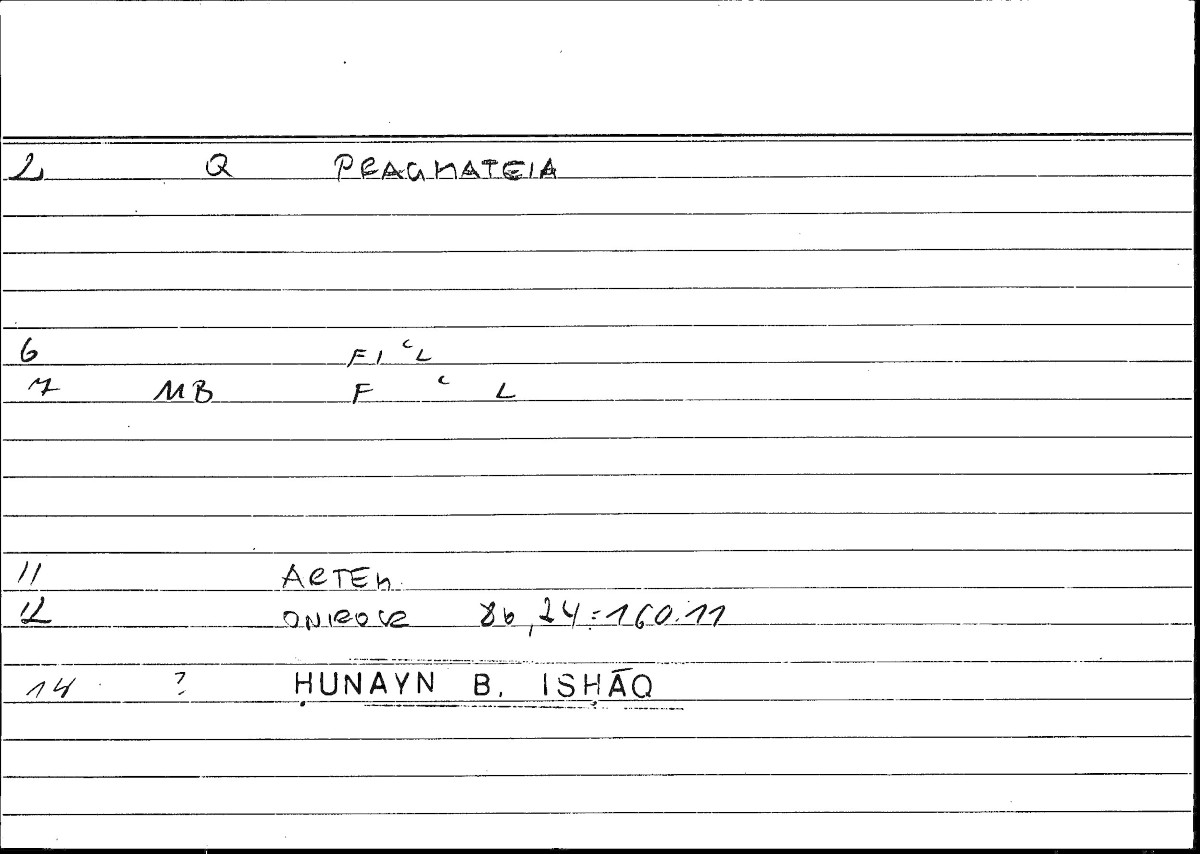 2 Q PRAGMATEIA
6 FI ʿL
7 MB F ʿ L
11 ARTEM.
12 ONIROCR 86,24=160.11
14 ? ḤUNAYN B. ISḤĀQ